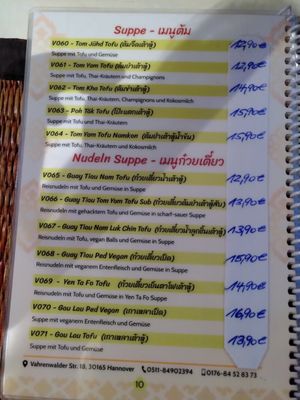 Suppe - เมนูต้ม
V060 - Tom Jühd Tofu (ต้มจืดเต้าหู้) 12,90€
Suppe mit Tofu und Gemüse
V061 - Tom Yam Tofu (ต้มยำเต้าหู้) 12,90€
Suppe mit Tofu, Thai-Kräutern und Champignons
V062 - Tom Kha Tofu (ต้มข่าเต้าหู้) 14,90€
Suppe mit Tofu, Thai-Kräutern, Champignons und Kokosmilch
V063 - Poh Täk Tofu (โป๊ะแตกเต้าหู้) 15,90€
Suppe mit Tofu und Thai-Kräutern
V064 - Tom Yam Tofu Namkon (ต้มยำเต้าหู้น้ำข้น) 15,90€
Suppe mit Tofu, Thai-Kräutern und Kokosmilch
Nudeln Suppe - เมนูก๋วยเตี๋ยว
V065 - Guay Tiau Nam Tofu (ก๋วยเตี๋ยวน้ำเต้าหู้) 12,90€
Reisnudeln mit Tofu und Gemüse in Suppe
V066 - Guay Tiau Tom Yam Tofu Sub (ก๋วยเตี๋ยวต้มยำเต้าหู้สับ) 13,90€
Reisnudeln mit gehacktem Tofu und Gemüse in scharf-sauer Suppe
V067 - Guay Tiau Nam Luk Chin Tofu (ก๋วยเตี๋ยวน้ำลูกชิ้นเต้าหู้) 13,90€
Reisnudeln mit Tofu, vegan Balls und Gemüse in Suppe
V068 - Guay Tiau Ped Vegan (ก๋วยเตี๋ยวเป็ด) 15,90€
Reisnudeln mit veganem Entenfleisch und Gemüse in Suppe
V069 - Yen Ta Fo Tofu (ก๋วยเตี๋ยวเย็นตาโฟเต้าหู้) 14,90€
Reisnudeln mit Tofu und Gemüse in Yen Ta Fo Suppe
V070 - Gau Lau Ped Vegan (เกาเหลาเป็ด) 16,90€
Suppe mit veganem Entenfleisch und Gemüse
V071 - Gau Lau Tofu (เกาเหลาเต้าหู้) 13,90€
Suppe mit Tofu und Gemüse
Vahrenwalder Str. 18, 30165 Hannover 0511-84902394 0176-84 52 83 73
10